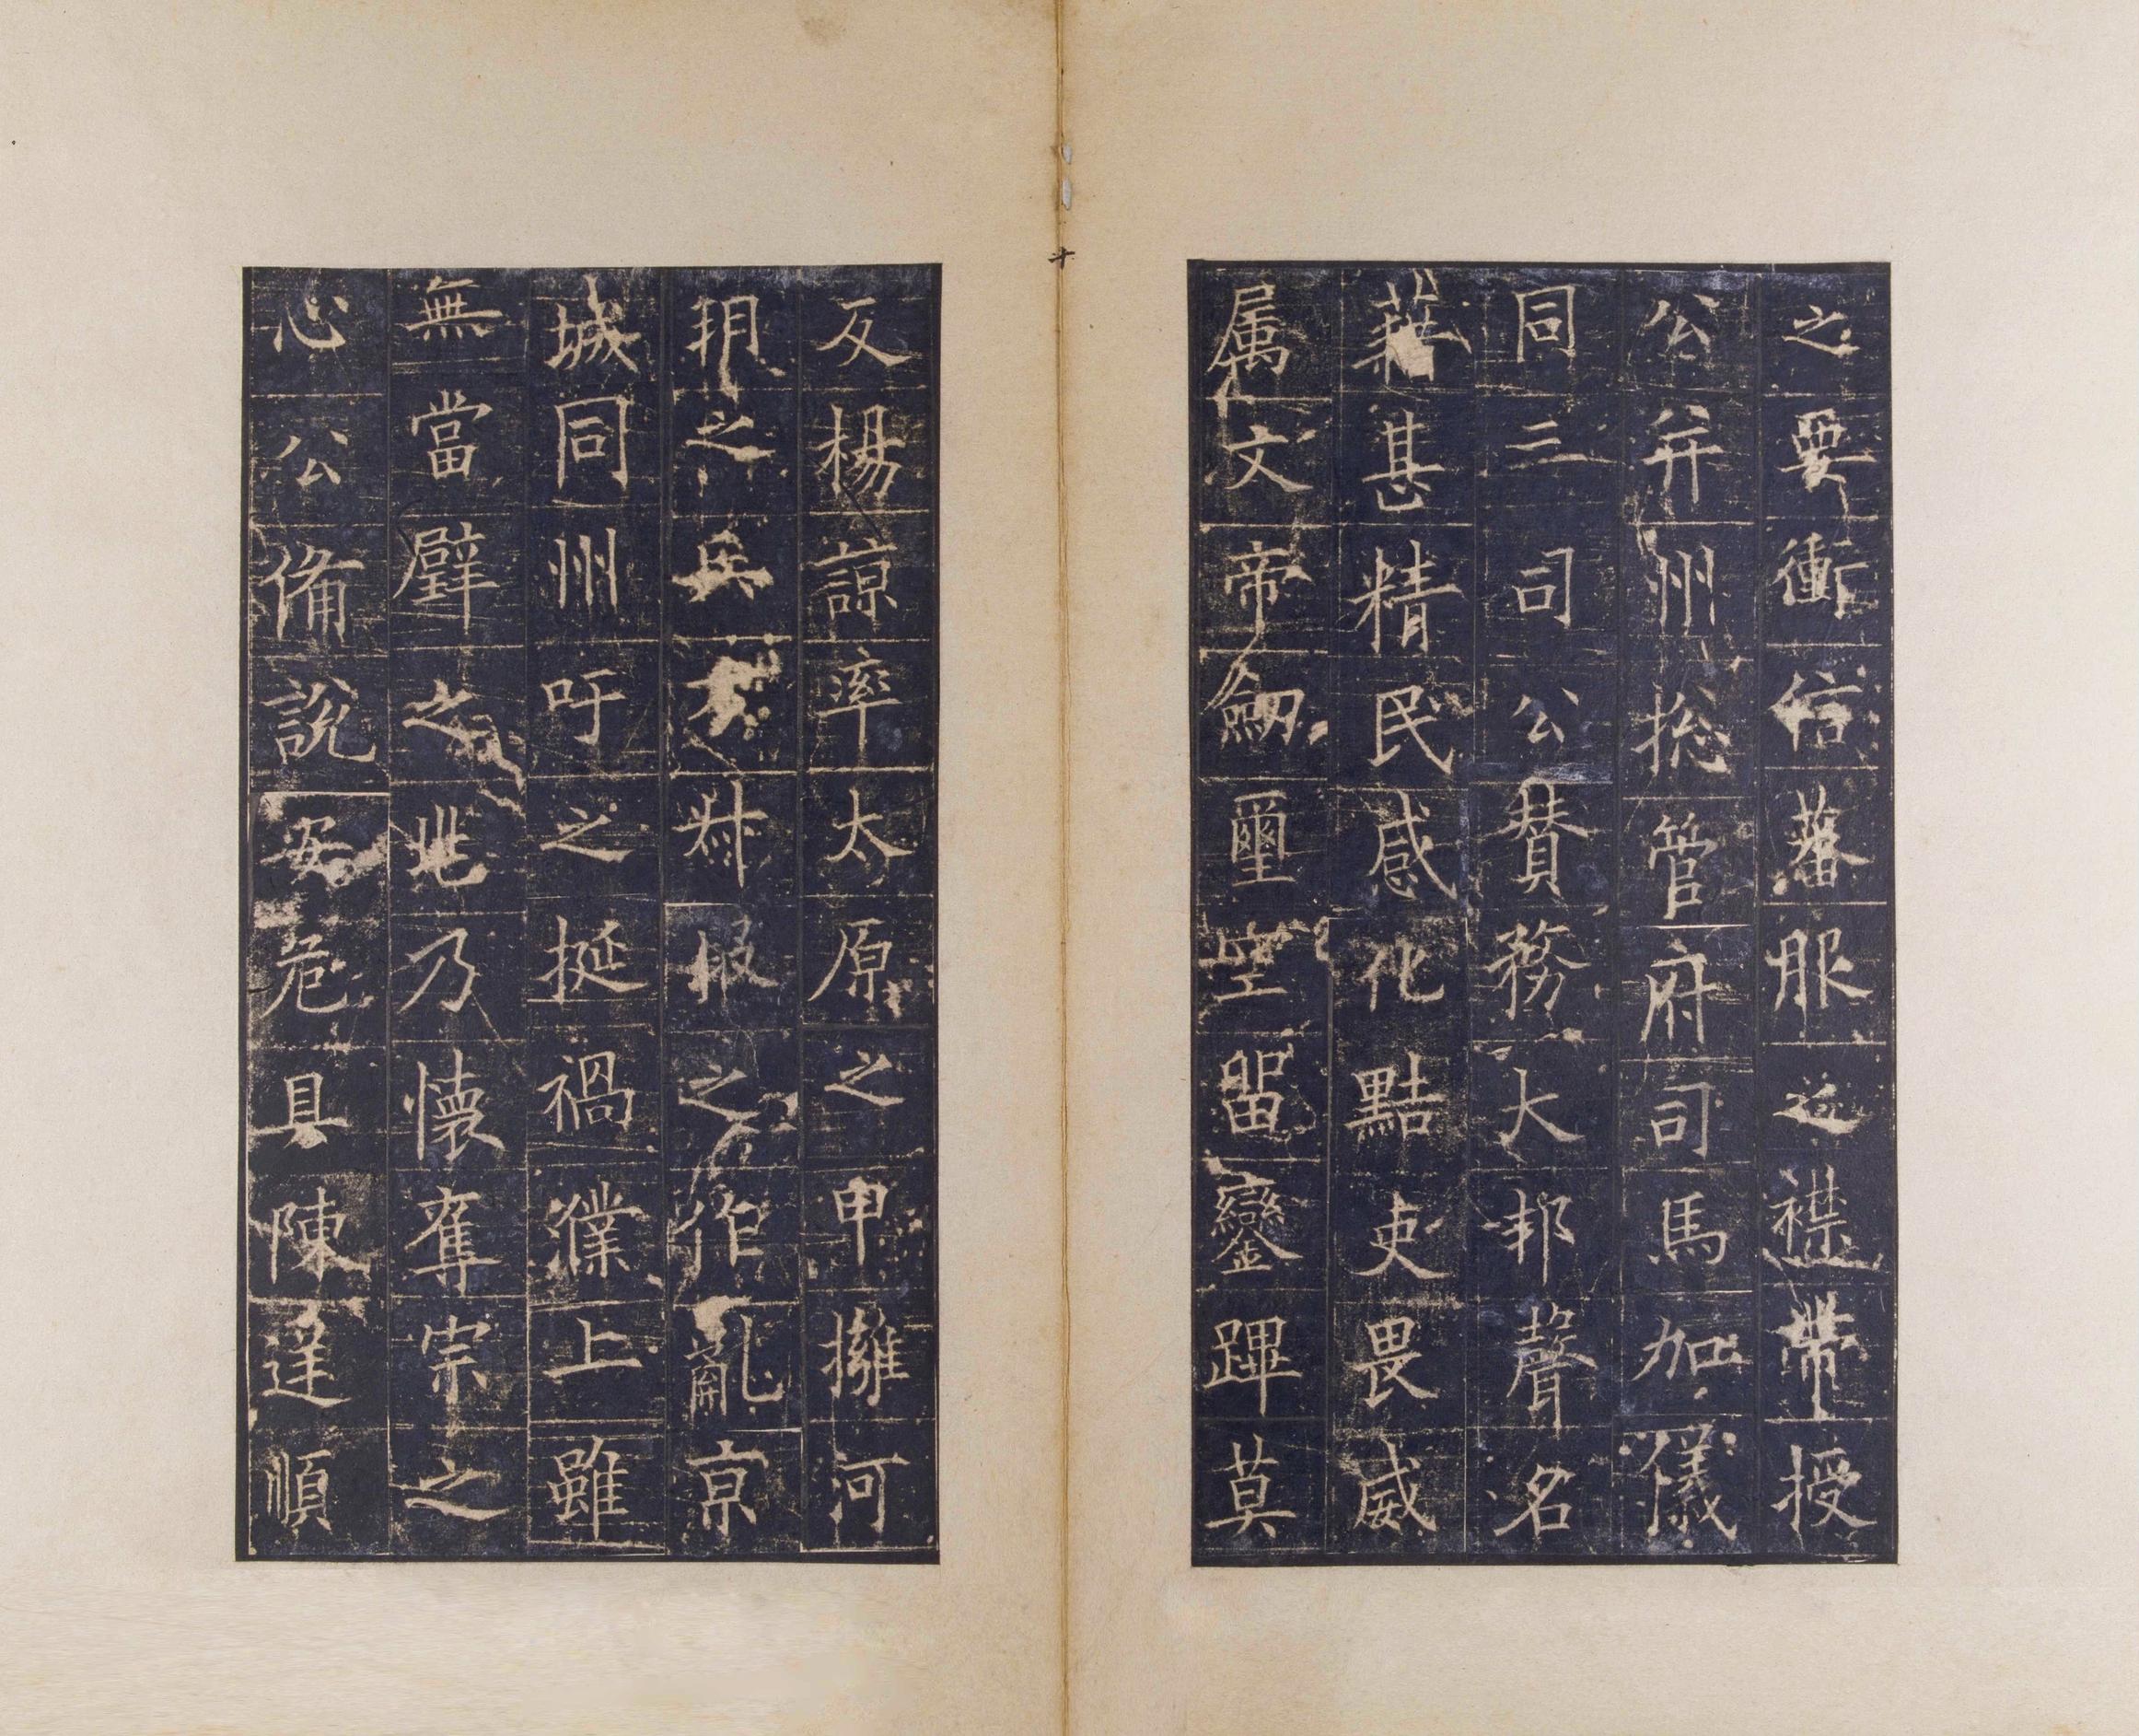 之要衝信蕃服之襟帶授
公并州捴管府司馬加儀
同三司公賛務大邦聲名
藉甚精民感化黠吏畏威
属文帝劒璽空留鑾蹕莫
反楊諒率太原之甲擁河
朔之兵方叔捉之作亂京
城同州吁之挺禍濮上雖
無當璧之兆乃懷奪宗之
心公備說安危具陳逆順